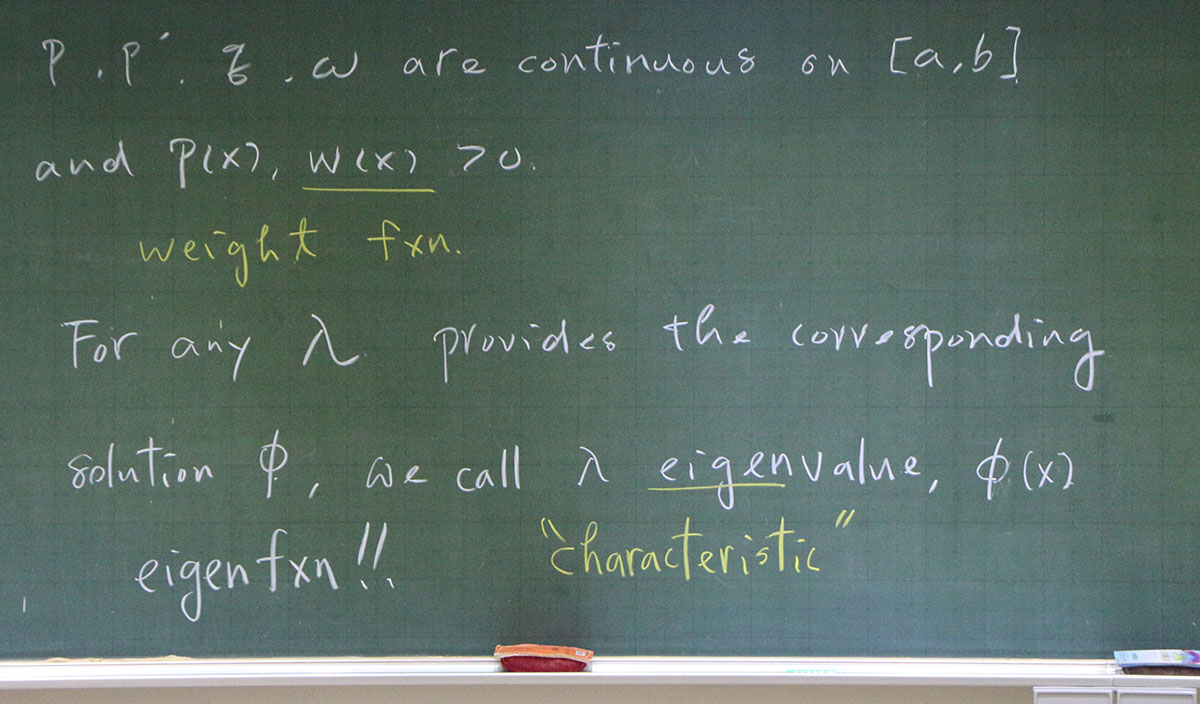 P, P', q, w are continuous on [a,b]
and P(x), w(x) >0.
weight fxn.
For any λ provides the corresponding
solution ϕ, we call λ eigenvalue, ϕ(x)
eigenfxn!! "characteristic"